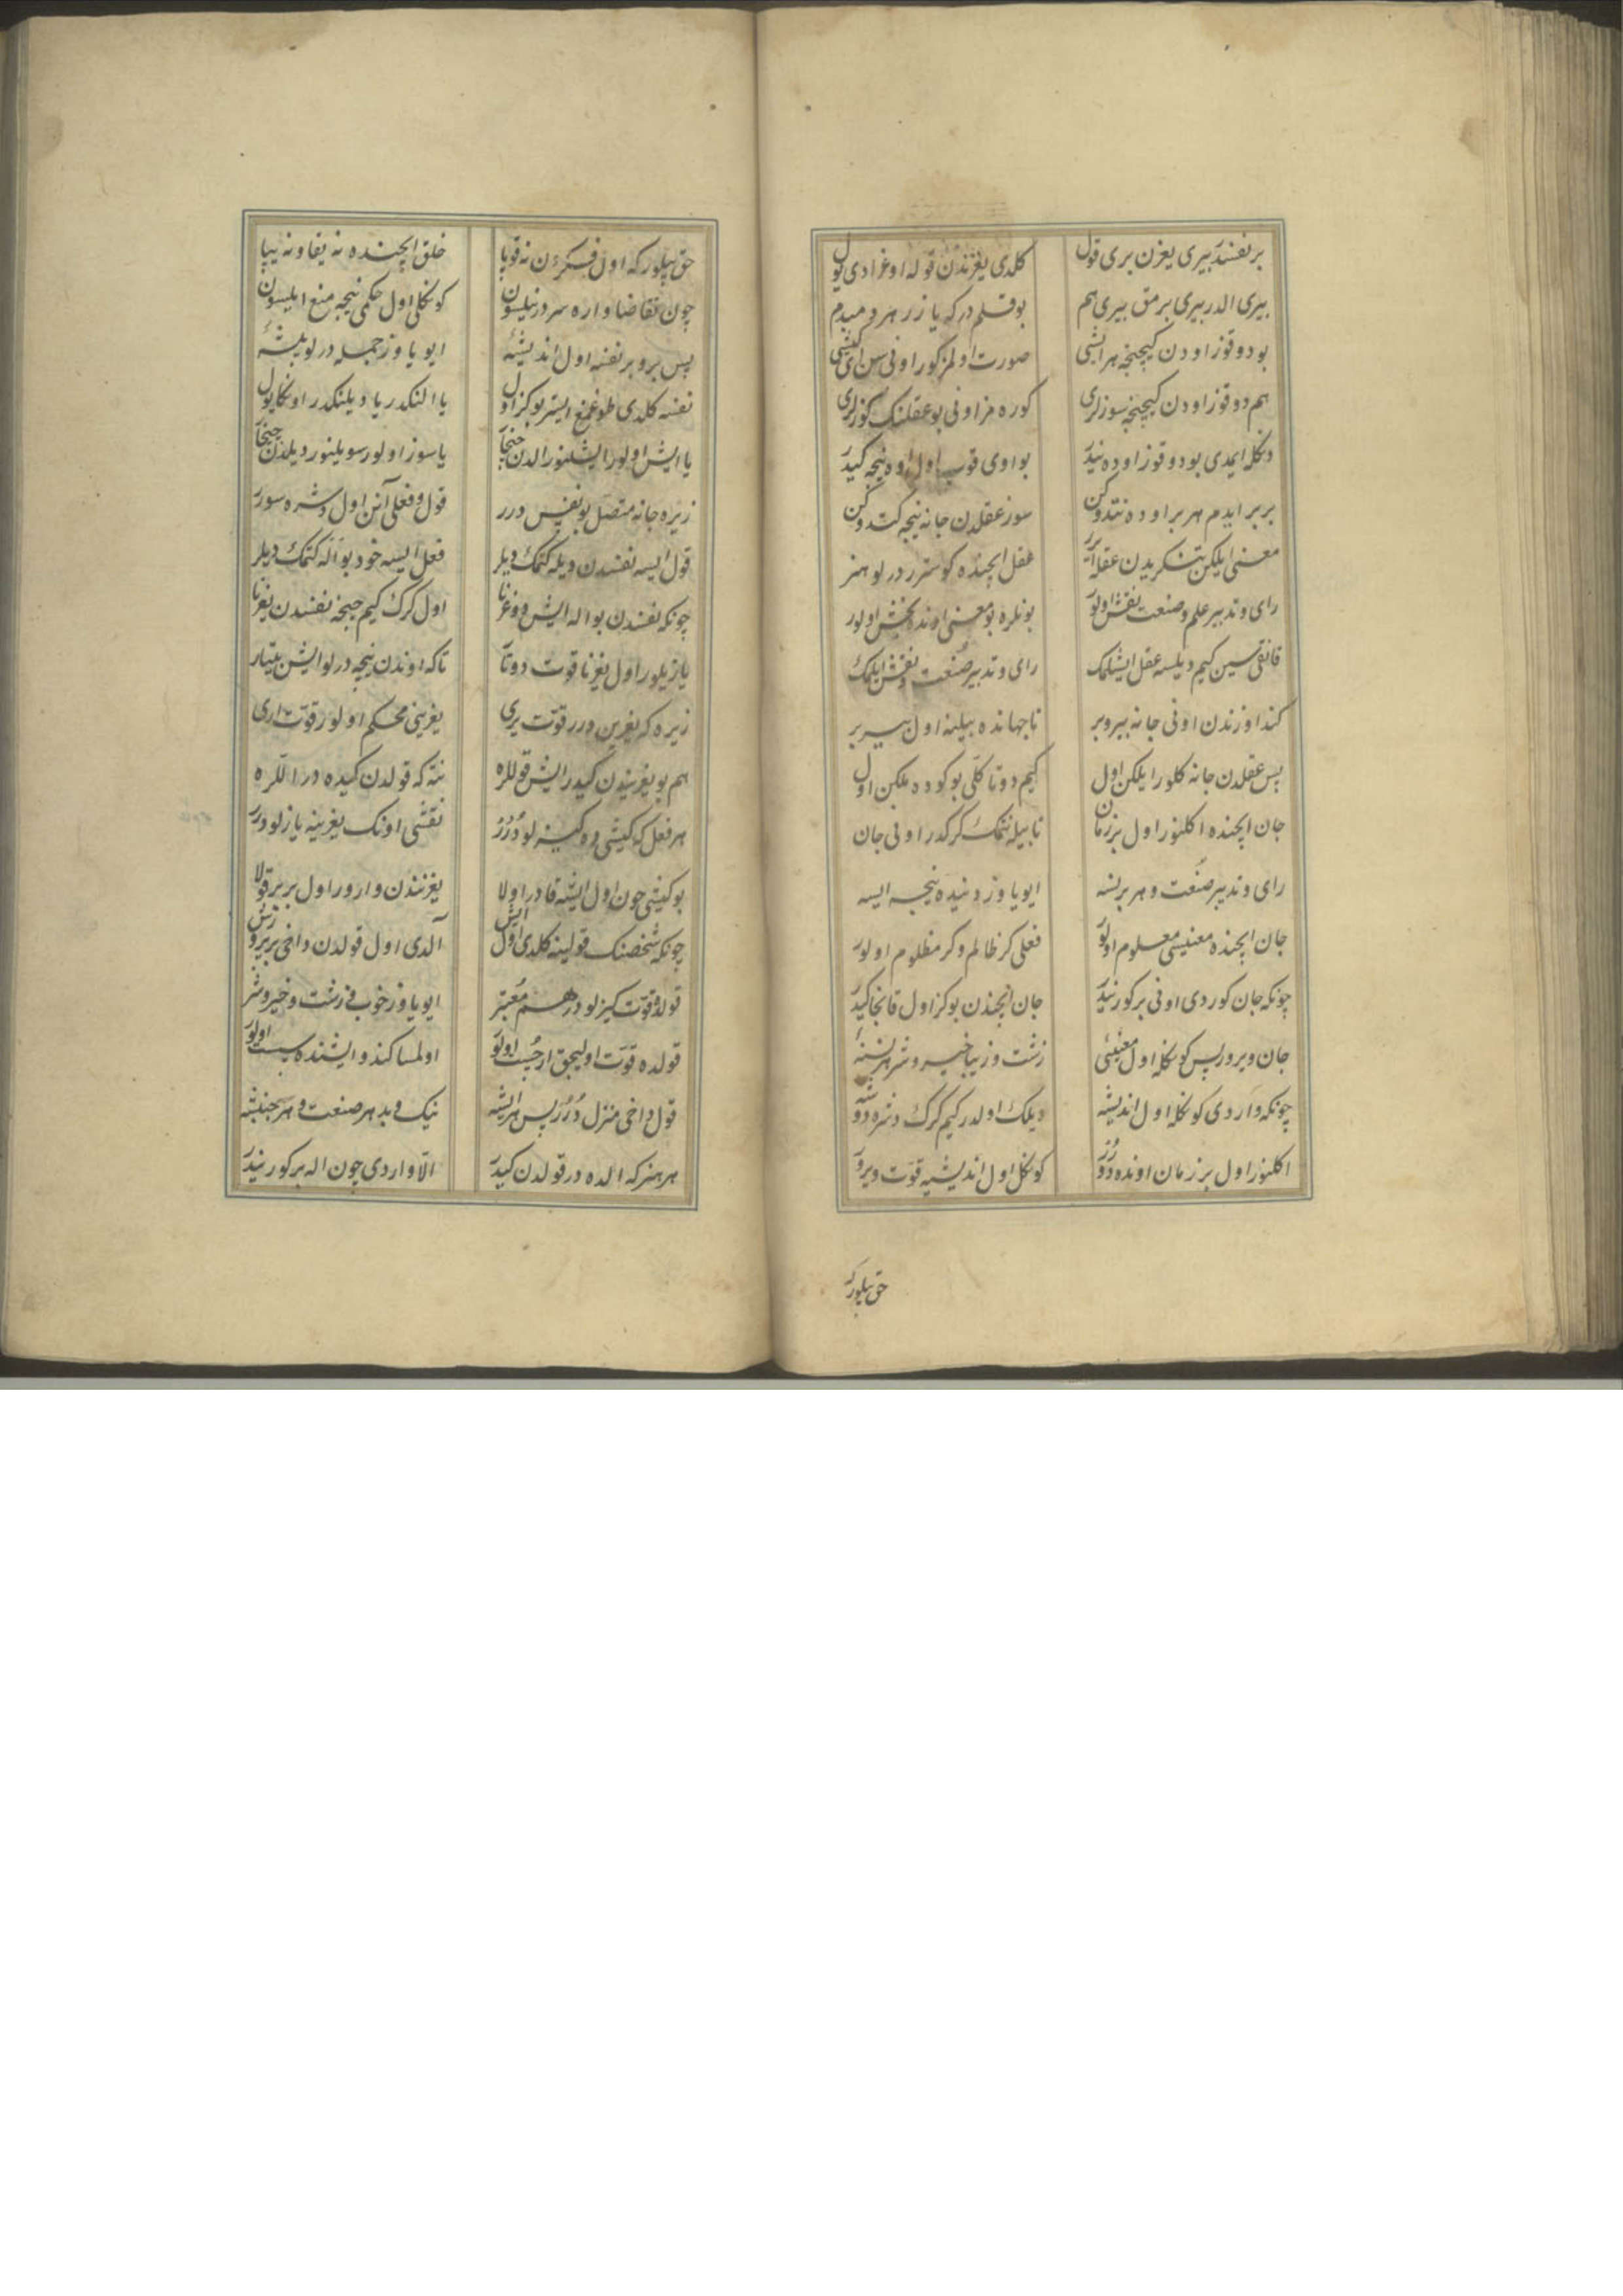 بر نفسندر بیری یغرن بری قول
کلدی یغرندن قوله اوغرادی یول
بیری الدر بیری برمق بیری هم
بو قلم در که یازر هر دم بدم
بو دوقوز اودن کچینجه هر ایشی
صورت اولمز کور اونی سن ای کیشی
هم دوقوز اودن کچینجه سوزلری
کوره مز اونی بو عقلنک کوزلری
دکله ایمدی بو دوقوز اوده نیدر
بو اوی قویب اول اوه نیجه کیدر
بربر ایدم هر بر اوده نتدوکن
سوز عقلدن جانه نیجه کتدوکن
معنی ایلکن تنکریدن عقله ایرر
عقل ایچنده کوسترر درلو هنر
رای و تدبیر علم و صنعت نقش اولور
بونلره بو معنی اونده بخش اولور
قانقی سین کیم دیلسه عقل ایشلمک
رای و تدبیر صنعت و نقش ایلمک
کندا وزندن اونی جانه بیرو بر
تا جهانده بیلینه اول سیر بر
پس عقلدن جانه کلور ایلکن اول
کیم دوتا کلّی بو کوده ملکن اول
جان ایچنده اکلنور اول بر زمان
تا بیله نتمک کرکدر اونی جان
رای و تدبیر صنعت و هر بر نسه
ایو یاوز دنیده نیجه ایسه
جان ایچنده معنیسی معلوم اولور
فعلی کر ظالم و کر مظلوم اولور
چونکه جان کوردی اونی بر کور نیدر
جان ایچندن بو کز اول قانجا کیدر
جان ویرور پس کوکله اول معنیئی
زشت و زیبا خیر و شر هر نسنه
چونکه واردی کوکله اول اندیشه
دیلک اولدر کیم کرک دشره دوشه
اکلنور اول بر زمان اونده دورر
کوکل اول اندیشیه قوّت ویرور
حق بیلور که
حق بیلور که اول فکردن نه قوپا
خلق ایچنده نه یقا و نه یپا
چون تقاضا واره سر در نیلسون
کوکلی اول حکمی نیجه منع ایلسون
پس برو بر نفسه اول اندیشه
ایو یاوز جمله درلو پیشه
نفسه کلدی طوغمغ ایستر بو کز اول
یا النکدر یا دیلنکدر اوکا یول
یا ایش اولور ایشلنور الدن چیخا
یا سوز اولور سویلنور دیلدن چیخا
زیره جانه متصل بو نفس درر
قول و فعلی آنن اول دشره سورر
قول ایسه نفسدن دیله کتمک دیلر
فعل ایسه خود بو اله کتمک دیلر
چونکه نفسدن بو اله ایش دوغرنا
اول کرک کیم چیخه نفسدن یغرنا
یازیلور اول یغرنا قوت دوتا
تا که اوندن نیجه درلو ایش بیتار
زیره که یغرین درر قوّت یری
یغرینی محکم اولور قوّت اری
هم بو یغریندن کیدر ایش قوللره
نته که قولدن کیده در اللره
هر فعل که کیشی ده کیزلو دورر
نقشی اونک یغرینه یازلودرر
بو کیشی چون اول ایشه قادر اولا
یغرنندن وارور اول بربر قولا
چونکه شخصنک قولینه کلدی اول ایش
آلدی اول قولدن داخی بر پرورش
قولده قوّت کیزلو درهم معتبر
ایو یاوز خوب و زشت و خیر و شر
قولده قوّت اولیجق ار چست اولور
اولمسا کندو ایشنده سست اولور
قول داخی منزل دورر پس هر ایشه
نیک و بد هر صنعت و هر جنبشه
هر هنر که الده در قولدن کیدر
الّا واردی چون اله بر کور نیدر